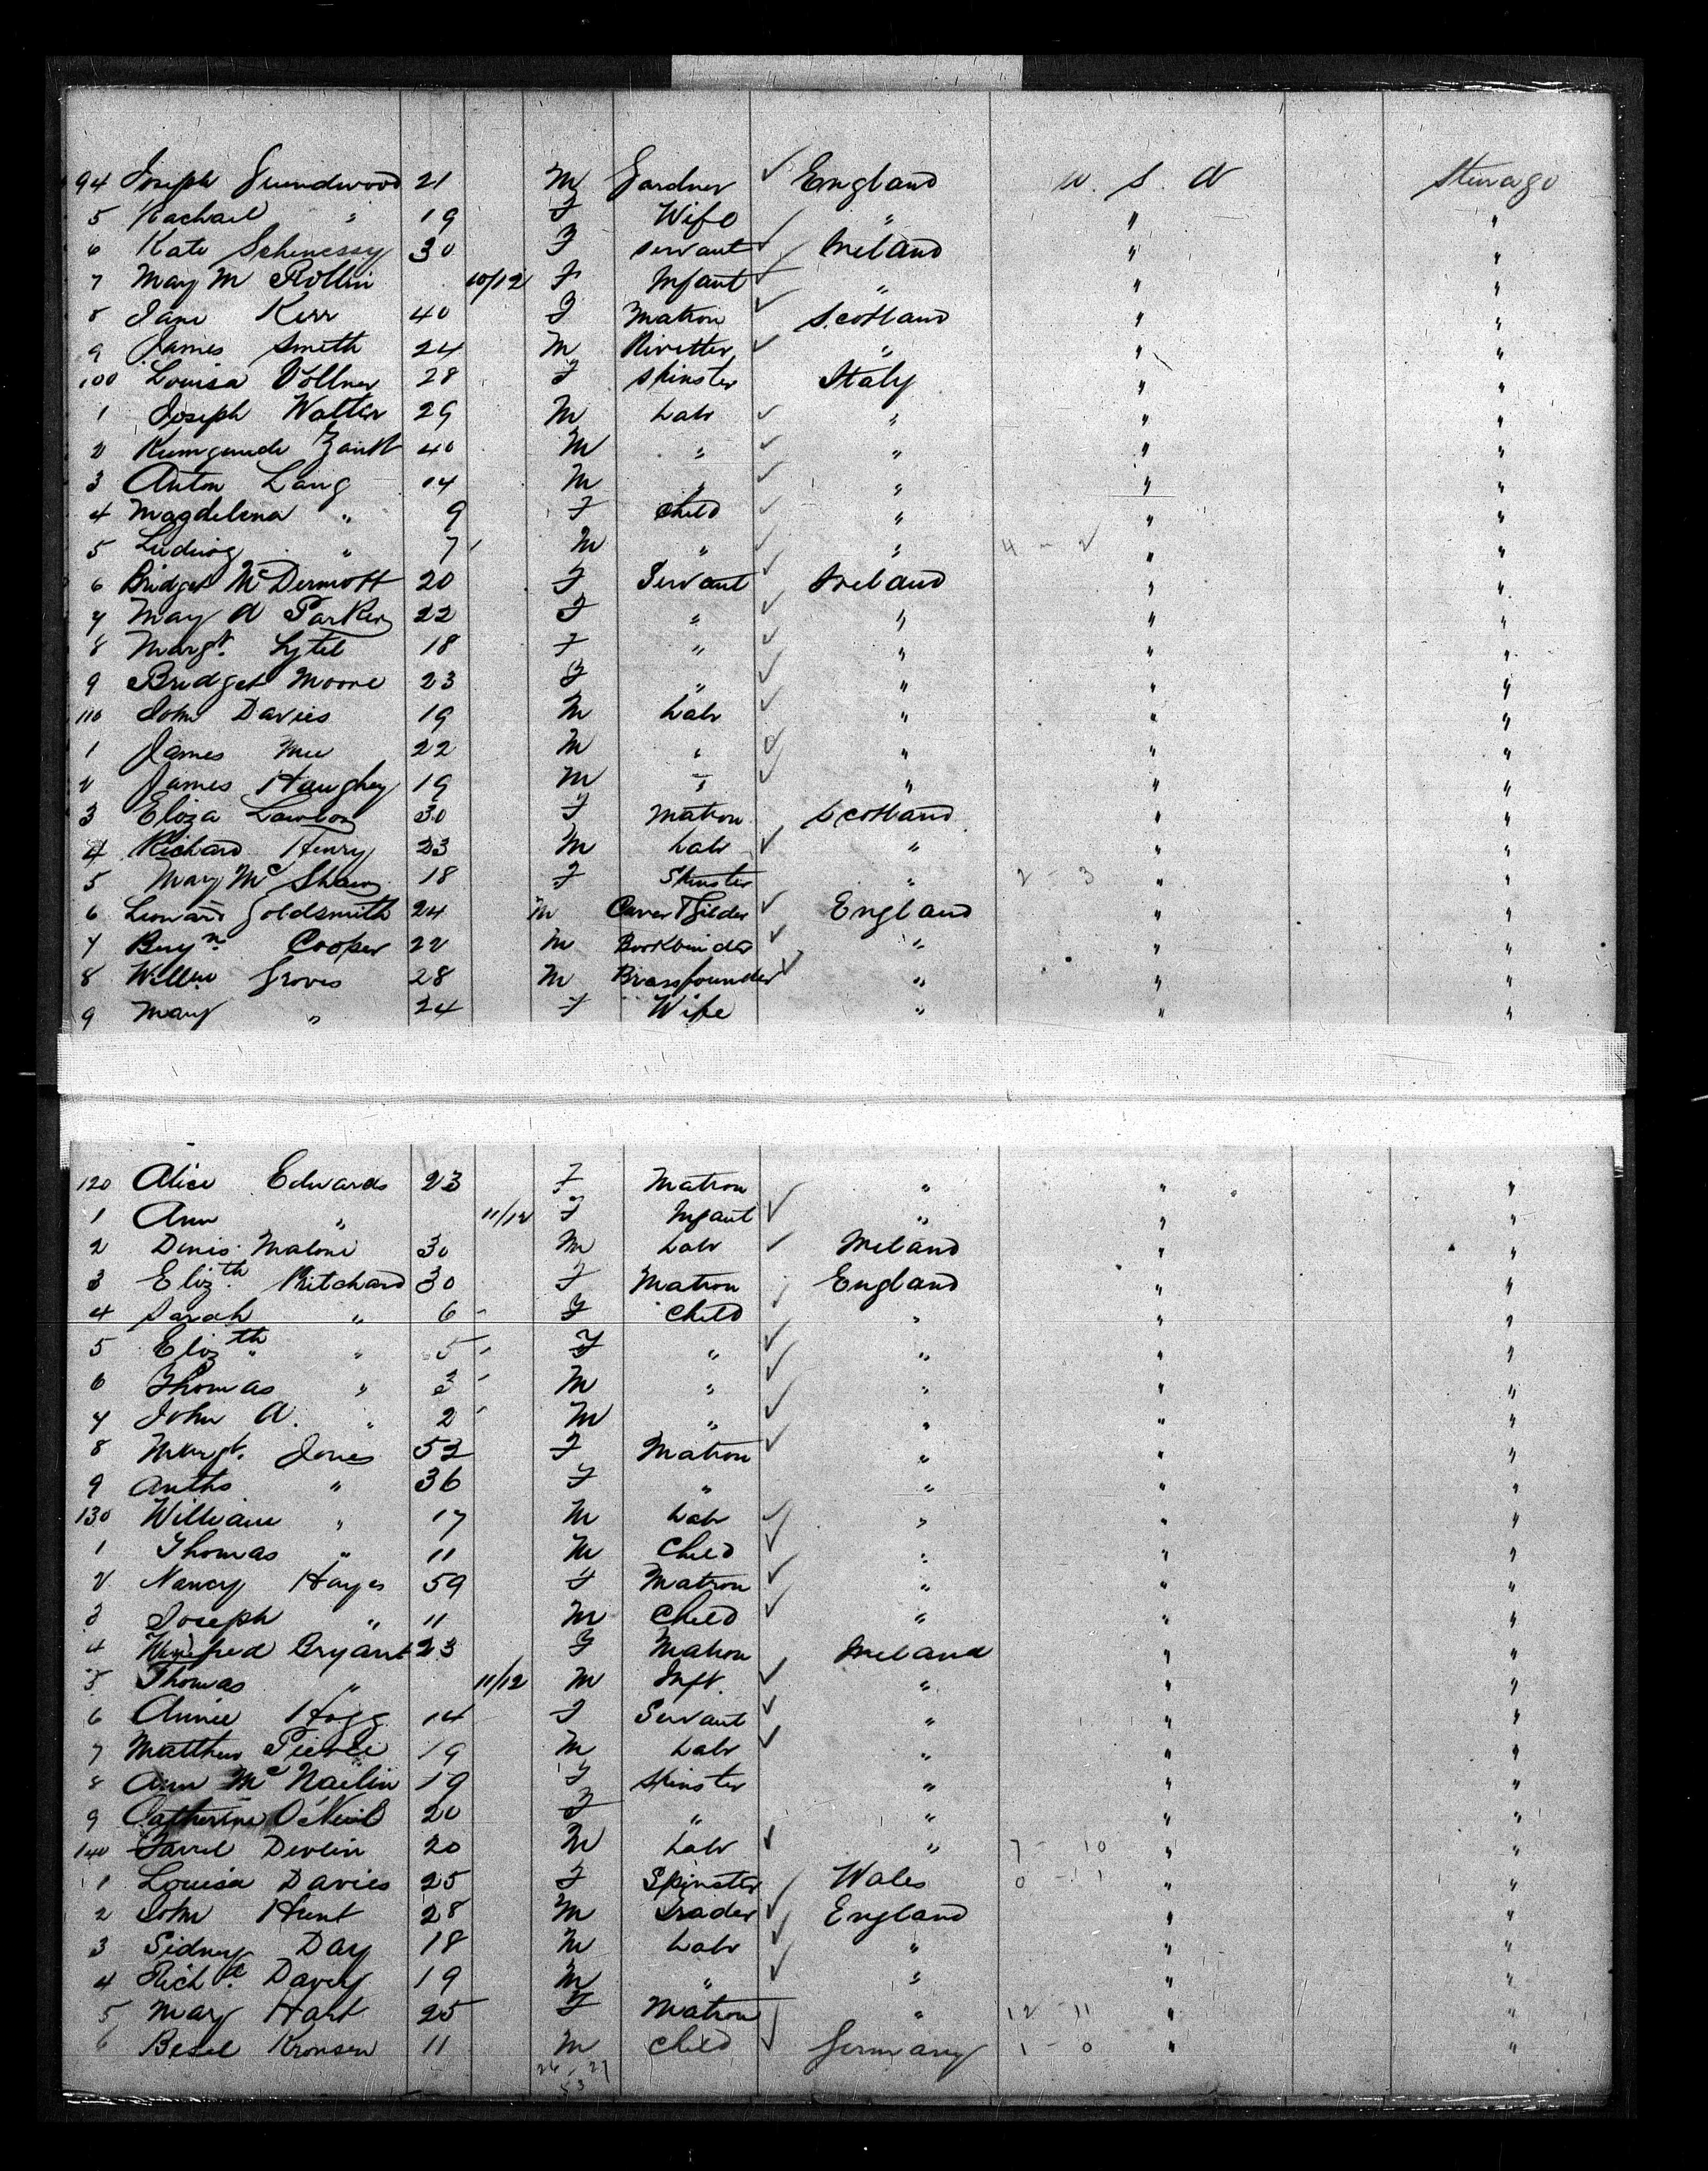 94 Joseph Grundwood 21 M Gardner England U. S. A Sturage
5 Rachael " 19 F Wife " " "
6 Kate 30 F Servant Ireland " "
7 Mary M Rollin 10/12 F Infant " " "
8 Jane Kerr 40 F Matron Scotland " "
9 James Smith 24 M Rivetter " " "
100 Louisa Vollner 28 F Spinster Italy " "
1 Joseph Walter 29 M Labr " " "
2 40 M " " " "
3 Anton Lang 14 M " " " "
4 Magdelena " 9 F Child " " "
5 Ludwig " 7 M " " 4 - 2 " "
6 Bridget McDermott 20 F Servant Ireland " "
7 May A Parker 22 F " " " "
8 Margt. Lytel 18 F " " " "
9 Bridget Moore 23 F " " " "
110 John Davies 19 M Labr " " "
1 James Mee 22 M " " " "
2 James Haughey 19 M " " " "
3 Eliza Lawson 30 F Matron Scotland " "
4 Richard Henry 23 M Labr " " "
5 Mary Mc Shane 18 F Spinster " 2 - 3 " "
6 Leonard Goldsmith 24 M Carver & Gilder England " "
7 Benjn. Cooper 22 M Bookbinder " " "
8 Willm Groves 28 M Brassfounder " " "
9 Mary " 24 F Wife " " "
120 Alice Edwards 23 F Matron " " "
1 Ann " 11/12 F Infant " " "
2 Denis Malone 30 M Labr Ireland " "
3 Elizth. Pritchard 30 F Matron England " "
4 Sarah " 6 F Child " " "
5 Elizth. " 5 F " " " "
6 Thomas " 3 M " " " "
7 John A. " 2 M " " " "
8 Margt. Jones 52 F Matron " " "
9 " 36 F " " " "
130 William " 17 M Labr " " "
1 Thomas " 11 M Child " " "
2 Nancy Hayes 59 F Matron " " "
3 Joseph " 11 M Child " " "
4 Winefred Bryant 23 F Matron Ireland " "
5 Thomas " 11/12 M Inft. " " "
6 Annie Hogg 14 F Servant " " "
7 Matthew 19 M Labr " " "
8 Ann Mc Nailin 19 F Spinster " " "
9 Catherine O'Neil 20 F " " " "
140 Farrel Devlin 20 M Labr " 7 - 10 " "
1 Louisa Davies 25 F Spinster Wales 0 - 1 " "
2 John Hunt 28 M Trader England " "
3 Sidney Day 18 M Labr " " "
4 Richd. Davey 19 M " " " "
5 Mary Hart 25 F Matron " 12 - 11 " "
6 Besel Kronsen 11 M Child Germany 1 - 0 " "
26 - 27
53